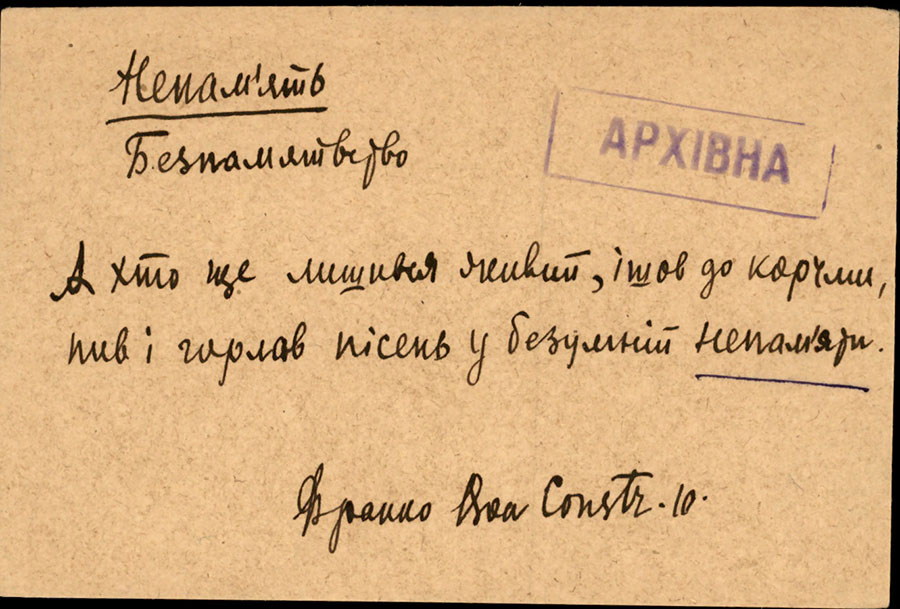 Непам'ять
Безпамятство
АРХІВНА
А хто ще лишився живий, ішов до корчми,
пив і горлав пісень у безумній непам'яти.
Франко Boa Constr. 10.